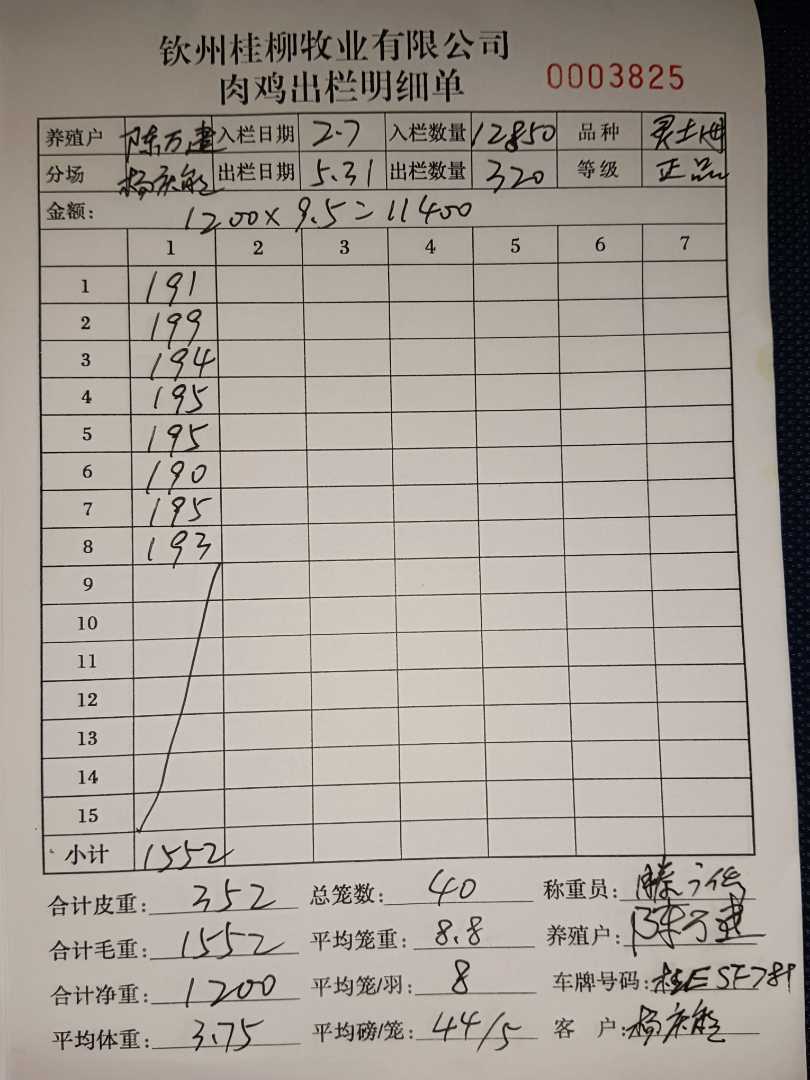 钦州桂柳牧业有限公司
肉鸡出栏明细单 0003825
养殖户 陈万建 入栏日期 2.7 入栏数量 12850 品种
分场 杨庆能 出栏日期 5.31 出栏数量 320 等级 正品
金额: 1200×9.5=11400
1 2 3 4 5 6 7
1 191
2 199
3 194
4 195
5 195
6 190
7 195
8 193
9
10
11
12
13
14
15
小计 1552
合计皮重: 352 总笼数: 40 称重员:
合计毛重: 1552 平均笼重: 8.8 养殖户: 陈万建
合计净重: 1200 平均笼/羽: 8 车牌号码: 桂ESF789
平均体重: 3.75 平均磅/笼: 44/5 客 户: 杨庆能